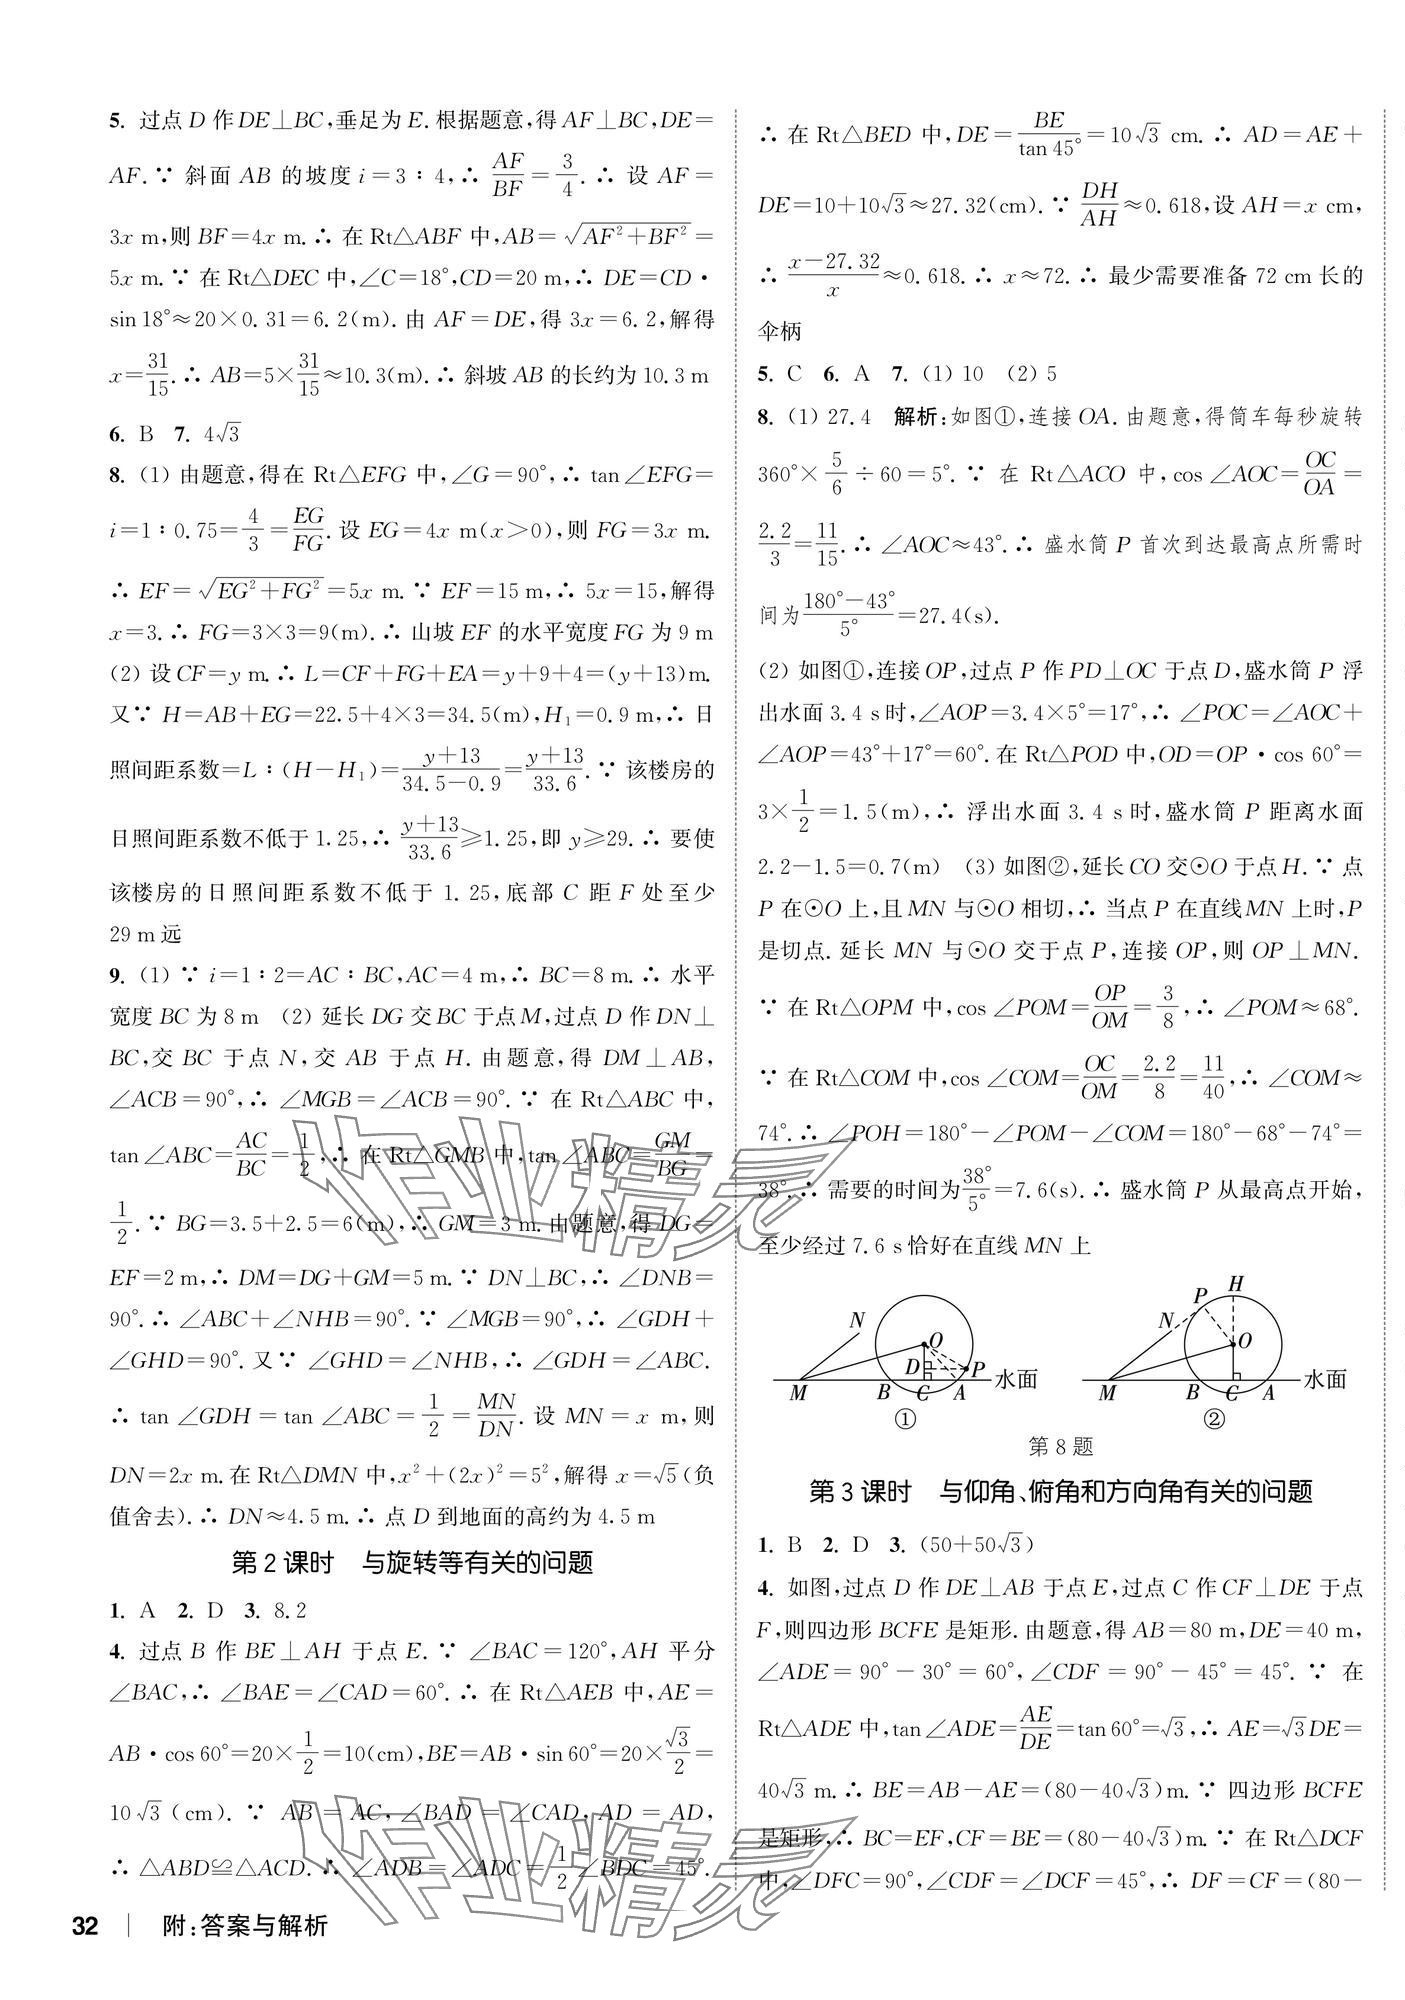 5. 过点 D 作 DE⊥BC,垂足为 E. 根据题意,得 AF⊥BC,DE=
AF. ∵ 斜面 AB 的坡度 i=3∶4,∴ AF/BF=3/4. ∴ 设 AF=
3x m,则 BF=4x m. ∴ 在 Rt△ABF 中,AB=√(AF²+BF²)=
5x m. ∵ 在 Rt△DEC 中,∠C=18°,CD=20 m,∴ DE=CD·
sin 18°≈20×0.31=6.2(m). 由 AF=DE,得 3x=6.2,解得
x=31/15. ∴ AB=5×31/15≈10.3(m). ∴ 斜坡 AB 的长约为 10.3 m
6. B 7. 4√3
8. (1) 由题意,得在 Rt△EFG 中,∠G=90°,∴ tan∠EFG=
i=1∶0.75=4/3=EG/FG. 设 EG=4x m(x>0),则 FG=3x m.
∴ EF=√(EG²+FG²)=5x m. ∵ EF=15 m,∴ 5x=15,解得
x=3. ∴ FG=3×3=9(m). ∴ 山坡 EF 的水平宽度 FG 为 9 m
(2) 设 CF=y m. ∴ L=CF+FG+EA=y+9+4=(y+13)m.
又∵ H=AB+EG=22.5+4×3=34.5(m),H₁=0.9 m,∴ 日
照间距系数=L∶(H−H₁)=(y+13)/(34.5−0.9)=(y+13)/33.6. ∵ 该楼房的
日照间距系数不低于 1.25,∴ (y+13)/33.6≥1.25,即 y≥29. ∴ 要使
该楼房的日照间距系数不低于 1.25,底部 C 距 F 处至少
29 m 远
9. (1) ∵ i=1∶2=AC∶BC,AC=4 m,∴ BC=8 m. ∴ 水平
宽度 BC 为 8 m (2) 延长 DG 交 BC 于点 M,过点 D 作 DN⊥
BC,交 BC 于点 N,交 AB 于点 H. 由题意,得 DM⊥AB,
∠ACB=90°,∴ ∠MGB=∠ACB=90°. ∵ 在 Rt△ABC 中,
tan∠ABC=AC/BC=1/2,∴ 在 Rt△GMB 中,tan∠ABC=GM/BG=
1/2. ∵ BG=3.5+2.5=6(m),∴ GM=3 m. 由题意,得 DG=
EF=2 m,∴ DM=DG+GM=5 m. ∵ DN⊥BC,∴ ∠DNB=
90°. ∴ ∠ABC+∠NHB=90°. ∵ ∠MGB=90°,∴ ∠GDH+
∠GHD=90°. 又∵ ∠GHD=∠NHB,∴ ∠GDH=∠ABC.
∴ tan∠GDH=tan∠ABC=1/2=MN/DN. 设 MN=x m,则
DN=2x m. 在 Rt△DMN 中,x²+(2x)²=5²,解得 x=√5(负
值舍去). ∴ DN≈4.5 m. ∴ 点 D 到地面的高约为 4.5 m
第 2 课时 与旋转等有关的问题
1. A 2. D 3. 8.2
4. 过点 B 作 BE⊥AH 于点 E. ∵ ∠BAC=120°,AH 平分
∠BAC,∴ ∠BAE=∠CAD=60°. ∴ 在 Rt△AEB 中,AE=
AB·cos 60°=20×1/2=10(cm),BE=AB·sin 60°=20×√3/2=
10√3(cm). ∵ AB=AC,∠BAD=∠CAD,AD=AD,
∴ △ABD≌△ACD. ∴ ∠ADB=∠ADC=1/2∠BDC=45°.
∴ 在 Rt△BED 中,DE=BE/tan 45°=10√3 cm. ∴ AD=AE+
DE=10+10√3≈27.32(cm). ∵ DH/AH≈0.618,设 AH=x cm,
∴ (x−27.32)/x≈0.618. ∴ x≈72. ∴ 最少需要准备 72 cm 长的
伞柄
5. C 6. A 7. (1) 10 (2) 5
8. (1) 27.4 解析:如图①,连接 OA. 由题意,得筒车每秒旋转
360°×5/6÷60=5°. ∵ 在 Rt△ACO 中,cos∠AOC=OC/OA=
2.2/3=11/15. ∴ ∠AOC≈43°. ∴ 盛水筒 P 首次到达最高点所需时
间为(180°−43°)/5°=27.4(s).
(2) 如图①,连接 OP,过点 P 作 PD⊥OC 于点 D,盛水筒 P 浮
出水面 3.4 s 时,∠AOP=3.4×5°=17°,∴ ∠POC=∠AOC+
∠AOP=43°+17°=60°. 在 Rt△POD 中,OD=OP·cos 60°=
3×1/2=1.5(m),∴ 浮出水面 3.4 s 时,盛水筒 P 距离水面
2.2−1.5=0.7(m) (3) 如图②,延长 CO 交⊙O 于点 H. ∵ 点
P 在⊙O 上,且 MN 与⊙O 相切,∴ 当点 P 在直线 MN 上时,P
是切点. 延长 MN 与⊙O 交于点 P,连接 OP,则 OP⊥MN.
∵ 在 Rt△OPM 中,cos∠POM=OP/OM=3/8,∴ ∠POM≈68°.
∵ 在 Rt△COM 中,cos∠COM=OC/OM=2.2/8=11/40,∴ ∠COM≈
74°. ∴ ∠POH=180°−∠POM−∠COM=180°−68°−74°=
38°. ∴ 需要的时间为38°/5°=7.6(s). ∴ 盛水筒 P 从最高点开始,
至少经过 7.6 s 恰好在直线 MN 上
N O D P M B C A 水面
①
H P N O M B C A 水面
②
第 8 题
第 3 课时 与仰角、俯角和方向角有关的问题
1. B 2. D 3. (50+50√3)
4. 如图,过点 D 作 DE⊥AB 于点 E,过点 C 作 CF⊥DE 于点
F,则四边形 BCFE 是矩形. 由题意,得 AB=80 m,DE=40 m,
∠ADE=90°−30°=60°,∠CDF=90°−45°=45°. ∵ 在
Rt△ADE 中,tan∠ADE=AE/DE=tan 60°=√3,∴ AE=√3DE=
40√3 m. ∴ BE=AB−AE=(80−40√3)m. ∵ 四边形 BCFE
是矩形,∴ BC=EF,CF=BE=(80−40√3)m. ∵ 在 Rt△DCF
中,∠DFC=90°,∠CDF=∠DCF=45°,∴ DF=CF=(80−
32 | 附:答案与解析
作业精灵
作业精灵